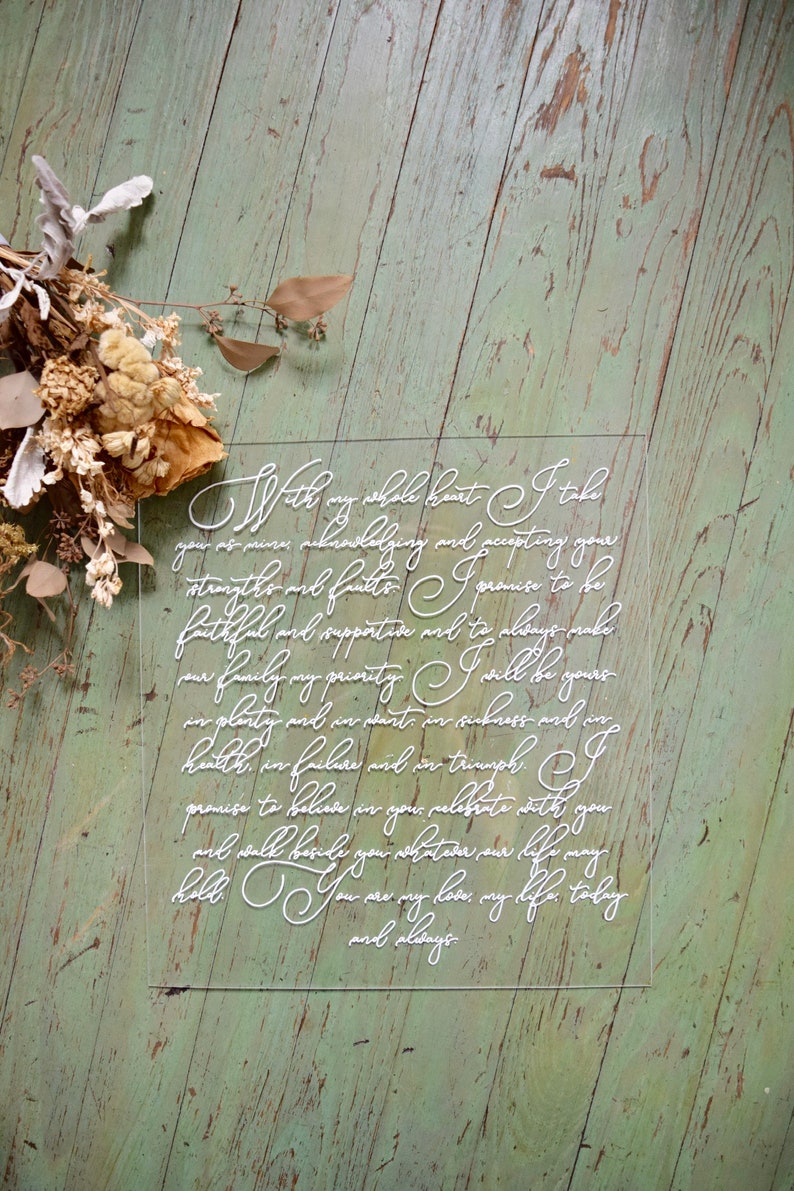 With my whole heart I take
you as mine, acknowledging and accepting your
strengths and faults. I promise to be
faithful and supportive and to always make
our family my priority. I will be yours
in plenty and in want, in sickness and in
health, in failure and in triumph. I
promise to believe in you, celebrate with you
and walk beside you whatever our life may
hold. You are my love, my life, today
and always.